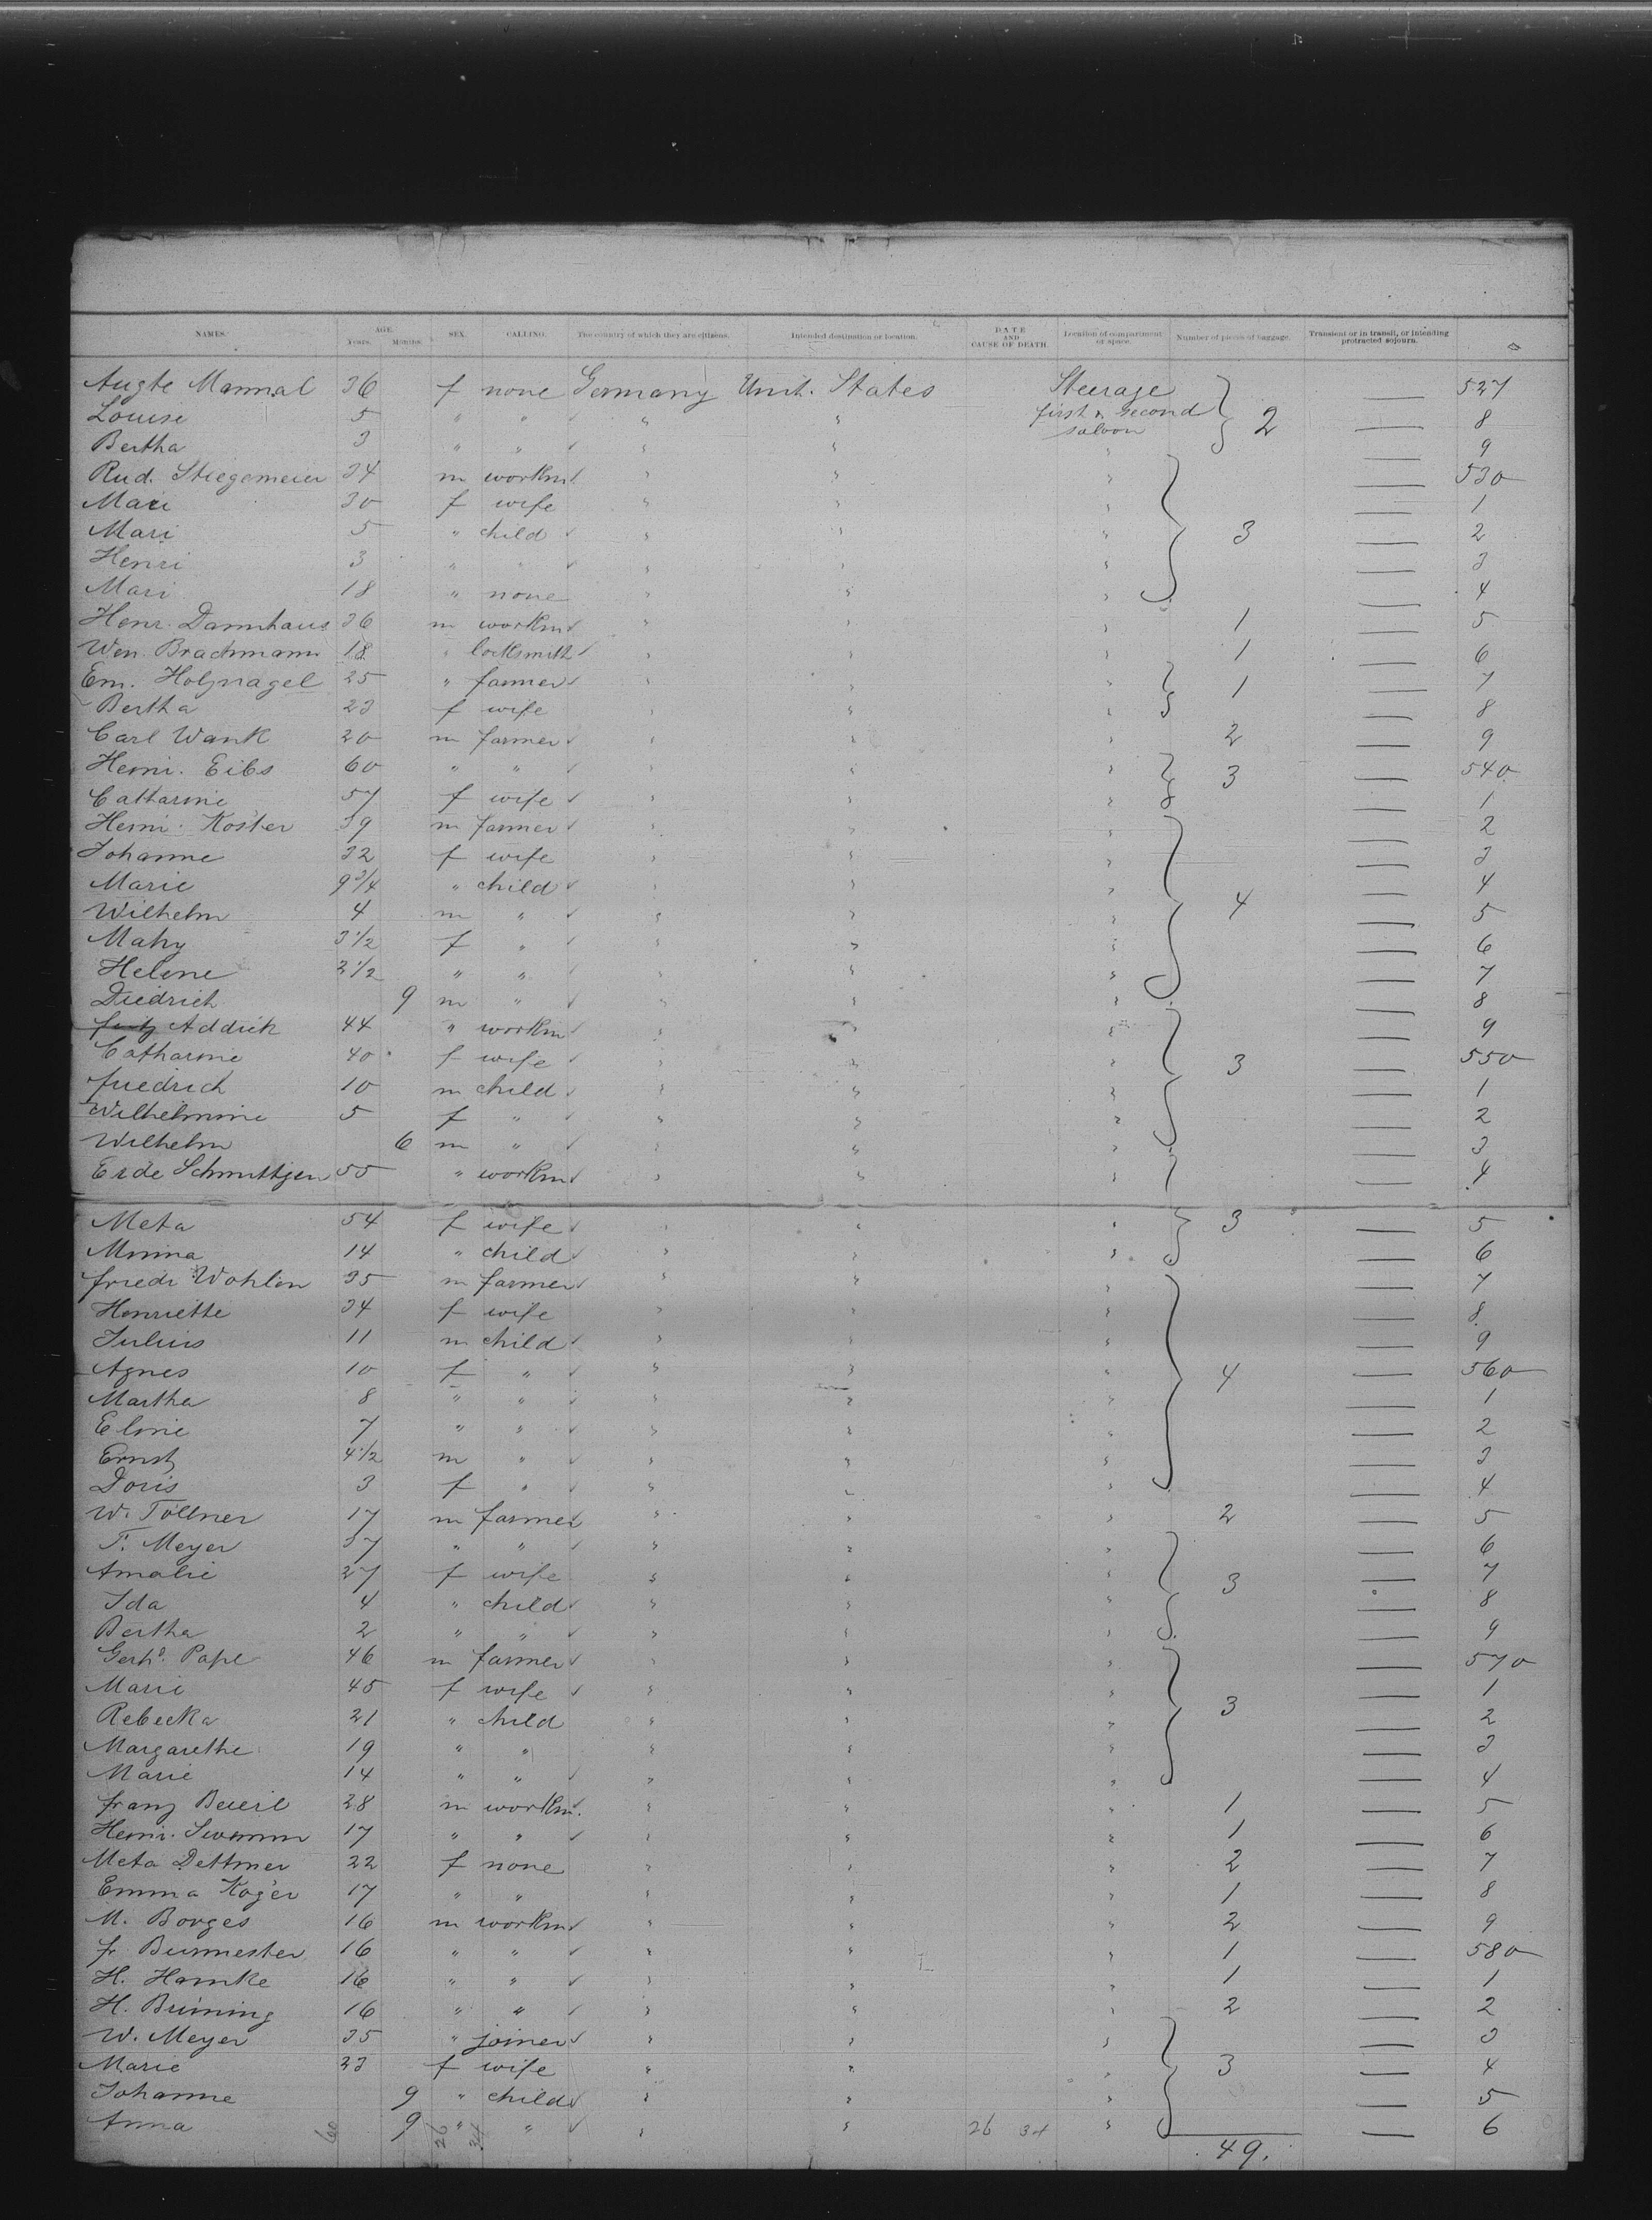 NAMES. AGE. Years. Months. SEX. CALLING. The country of which they are citizens. Intended destination or location. DATE AND CAUSE OF DEATH. Location of compartment or space. Number of pieces of baggage. Transient or in transit, or intending protracted sojourn.
Augte Mannal 36 f none Germany Unit. States Steerage — 527
Louise 5 " " " " first & second saloon 2 — 8
Bertha 3 " " " " " — 9
Rud. Stiegemeier 34 m workm " " " — 530
Mari 30 f wife " " " — 1
Mari 5 " child " " " 3 — 2
Henri 3 " " " " " — 3
Mari 18 " none " " " — 4
Henr. Dannhaus 36 m workm " " " 1 — 5
Wen. Brachmann 18 " locksmith " " " 1 — 6
Em. Holznagel 25 " farmer " " " 1 — 7
Bertha 23 f wife " " " — 8
Carl Wank 20 m farmer " " " 2 — 9
Heinr. Eibs 60 " " " " " 3 — 540
Catharine 57 f wife " " " — 1
Heinr. Koster 39 m farmer " " " — 2
Johanne 32 f wife " " " — 3
Marie 9 3/4 " child " " " — 4
Wilhelm 4 m " " " " 4 — 5
Mahy 3 1/2 f " " " " — 6
Helene 2 1/2 " " " " " — 7
Diedrich 9 m " " " " — 8
Addick 44 " workm " " " — 9
Catharine 40 f wife " " " 3 — 550
friedrich 10 m child " " " — 1
Wilhelmine 5 f " " " " — 2
Wilhelm 6 m " " " " — 3
Erde Schmuttjen 55 " workm " " " — 4
Meta 54 f wife " " " 3 — 5
Minna 14 " child " " " — 6
friedr Wohlen 35 m farmer " " " — 7
Henriette 34 f wife " " " — 8
Julius 11 m child " " " — 9
Agnes 10 f " " " " 4 — 560
Martha 8 " " " " " — 1
Eline 7 " " " " " — 2
Ernst 4 1/2 m " " " " — 3
Doris 3 f " " " " — 4
W. Töllner 17 m farmer " " " 2 — 5
F. Meyer 37 " " " " " — 6
Amalie 27 f wife " " " 3 — 7
Ida 4 " child " " " — 8
Bertha 2 " " " " " — 9
Gerhd. Pape 46 m farmer " " " — 570
Marie 45 f wife " " " — 1
Rebecka 21 " child " " " 3 — 2
Margarethe 19 " " " " " — 3
Marie 14 " " " " " — 4
franz Beieil 28 m workm. " " " 1 — 5
Heinr. Swamm 17 " " " " " 1 — 6
Meta Dettmer 22 f none " " " 2 — 7
Emma Koger 17 " " " " " 1 — 8
M. Borges 16 m workm " " " 2 — 9
fr Burmester 16 " " " " " 1 — 580
H. Hamke 16 " " " " " 1 — 1
H. Brüning 16 " " " " " 2 — 2
W. Meyer 35 " joiner " " " — 3
Marie 23 f wife " " " 3 — 4
Johanne 9 " child " " " — 5
Anna 9 " " " " 26 34 " — 6
60 26 34 49.